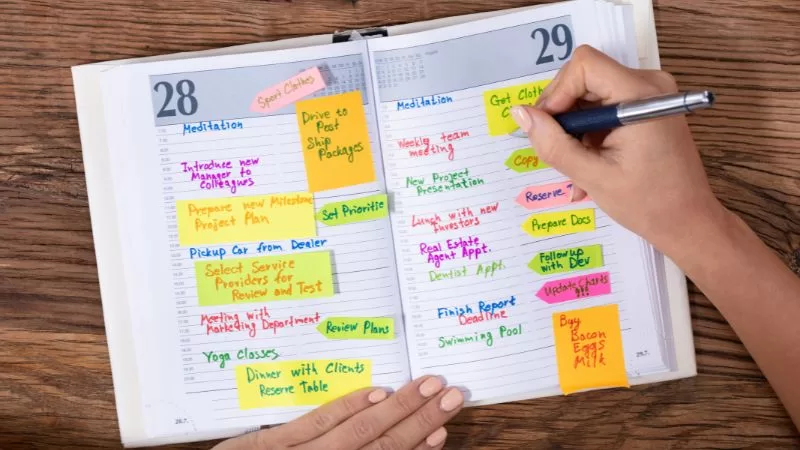 28
Sport Clothes
Meditation
Drive to
Post
Ship
Packages
Introduce new
Manager to
Colleagues
Prepare new Milestone
Project Plan
Set Prioritie
Pickup Car from Dealer
Select Service
Providers for
Review and Test
Meeting with
Marketing Department
Review Plans
Yoga Classes
Dinner with Clients
Reserve Table
29
Meditation
Get Cloth
Weekly team
meeting
Copy
New Project
Presentation
Reserve
Lunch with new
Investors
Prepare Docs
Real Estate
Agent Appt.
Followup
with Dev
Dentist Appt.
Update Charts
!!!
Finish Report
Deadline
Swimming Pool
Buy
Bacon
Eggs
Milk